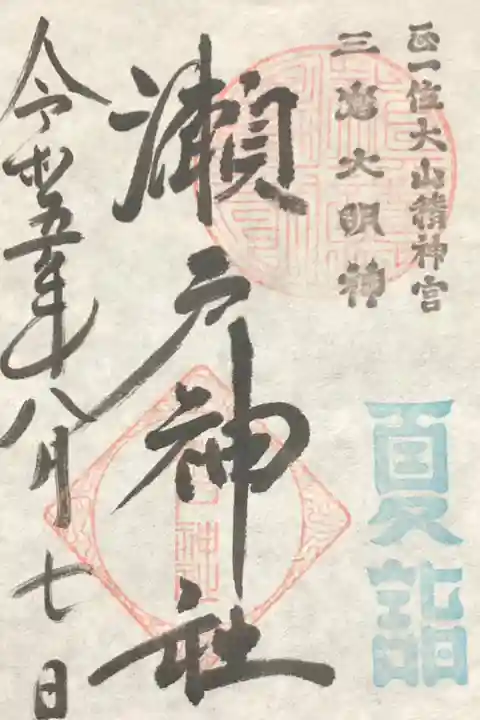 正一位大山積神宮
三嶌大明神
夏詣
瀬戸神社
令和五年八月七日